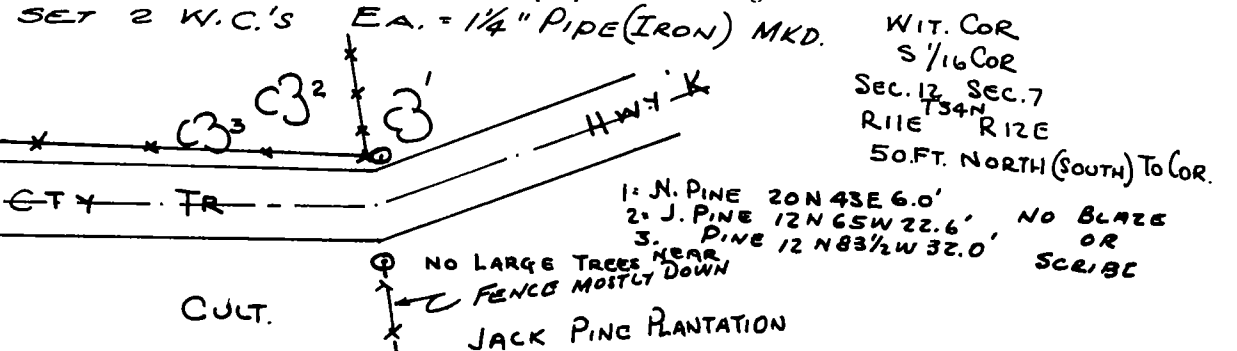 SET 2 W.C.'S EA. = 1¼" PIPE (IRON) MKD.
WIT. COR
S 1/16 COR
SEC. 12 SEC. 7
T34N
R11E R12E
50.FT. NORTH (SOUTH) TO COR.
3
2
1
HWY K
CTY TR
1= N. PINE 20 N 43E 6.0'
2= J. PINE 12 N 65W 22.6'
3. PINE 12 N 83½W 32.0'
NO BLAZE
OR
SCRIBE
NO LARGE TREES NEAR
FENCE MOSTLY DOWN
CULT.
JACK PINE PLANTATION